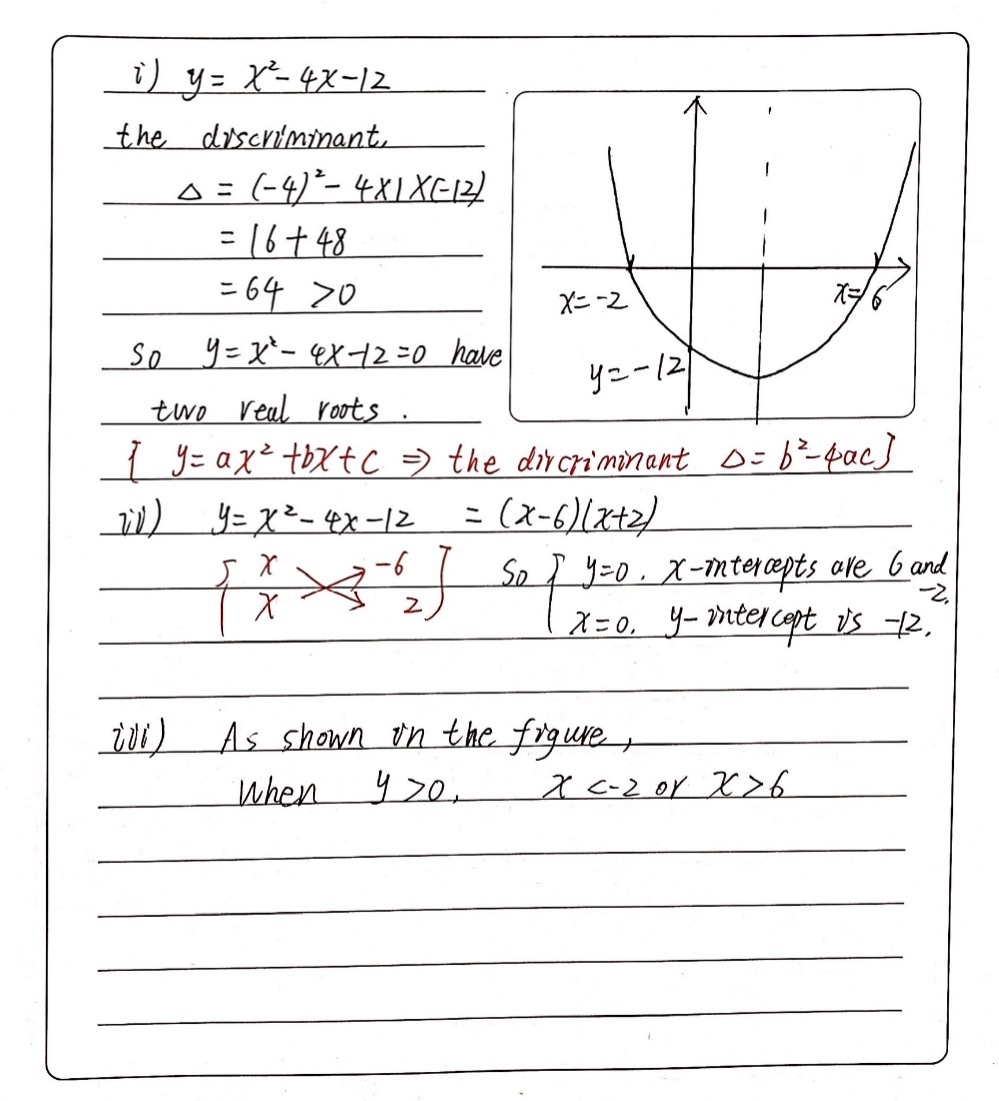 i) y = x² - 4x - 12
the discriminant,
△ = (-4)² - 4×1×(-12)
= 16 + 48
= 64 > 0
So y = x² - 4x - 12 = 0 have
two real roots.
x = -2
x = 6
y = -12
[ y = ax² + bx + c ⇒ the dircriminant △ = b² - 4ac ]
ii) y = x² - 4x - 12 = (x-6)(x+2)
x -6
x 2
So { y=0. x-intercepts are 6 and -2.
x=0. y-intercept is -12.
iii) As shown in the figure,
When y > 0, x < -2 or x > 6